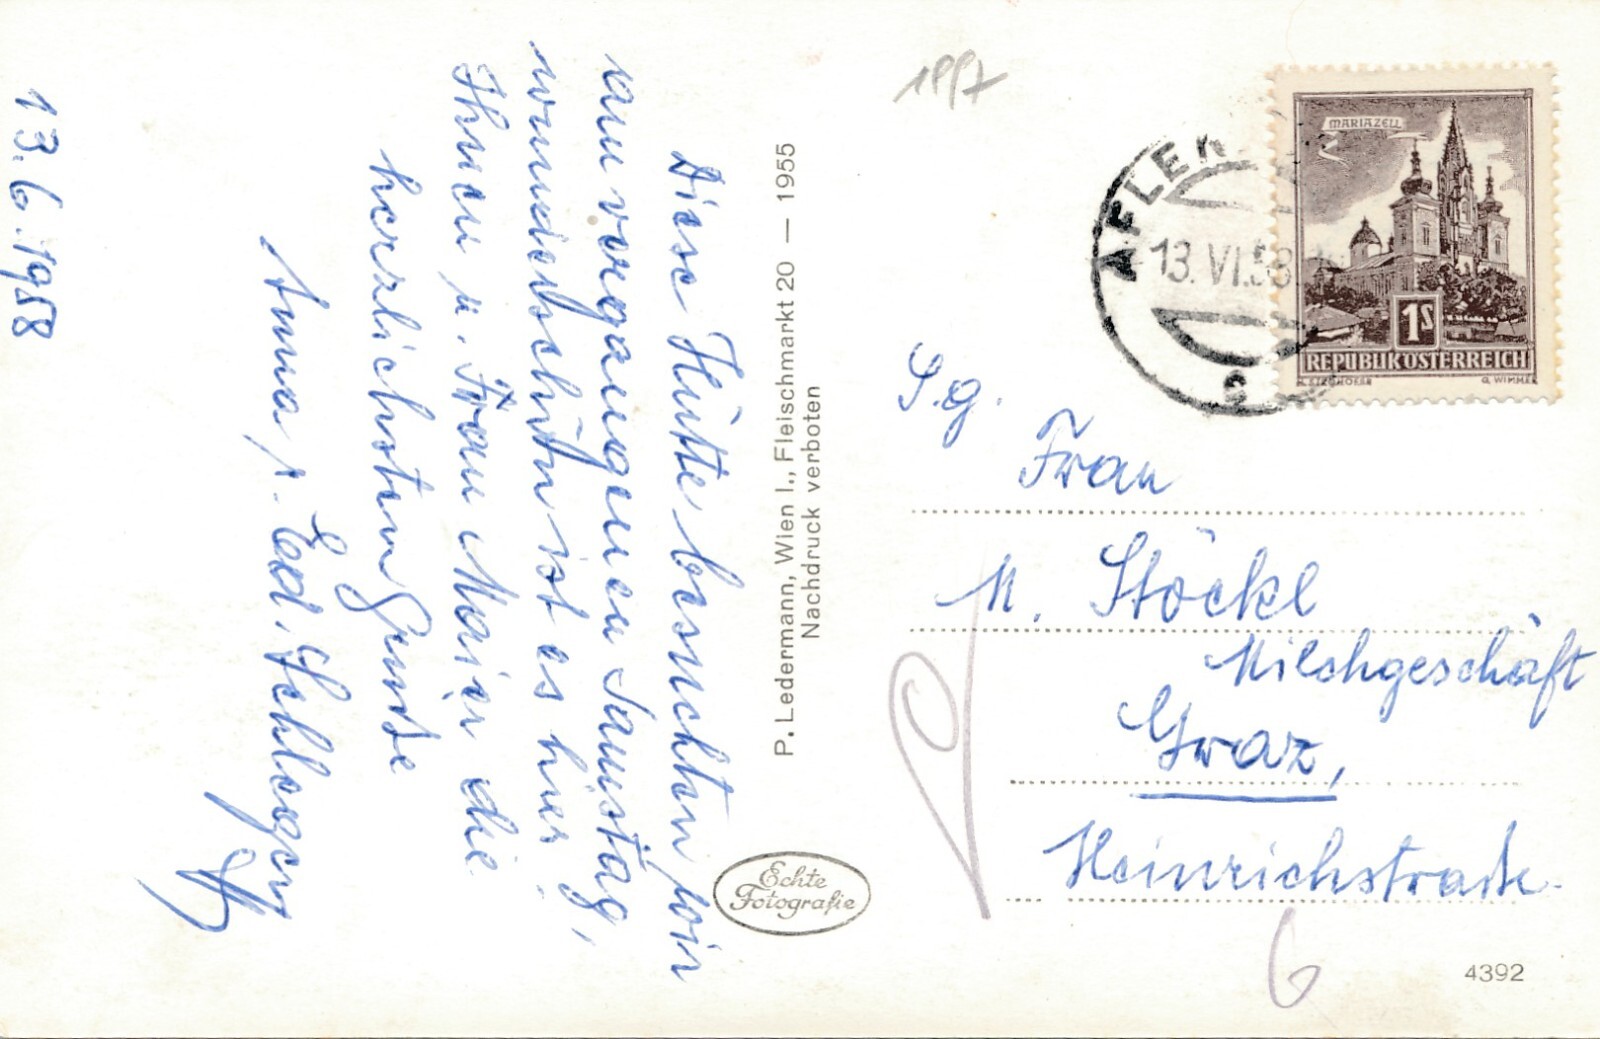 13.6.1958
Diese Hütte besuchten wir
am vergangenen Samstag,
wunderschön ist es hier.
Ihnen u. Frau Maier die
herzlichsten Grüsse
Anna u. Ed.
P. Ledermann, Wien I., Fleischmarkt 20 — 1955
Nachdruck verboten
Echte
Fotografie
AFLEN
13.VI.58
MARIAZELL
1S
REPUBLIK ÖSTERREICH
G. WIMMER
S.g.
Frau
M. Stöckl
Milchgeschäft
Graz,
Heinrichstraße
6
4392